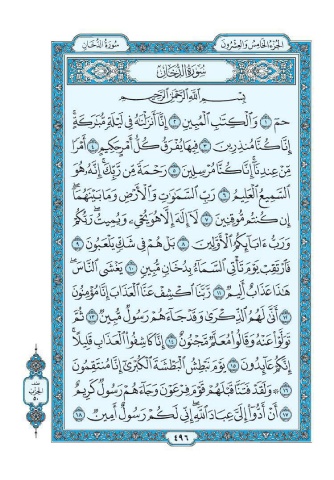 سُورَةُ الدُّخَانِ
الجُزْءُ الخَامِسُ وَالعِشْرُونَ
سُورَةُ الدُّخَانِ
بِسْمِ اللَّهِ الرَّحْمَٰنِ الرَّحِيمِ
حمٓ ١ وَالْكِتَابِ الْمُبِينِ ٢ إِنَّا أَنزَلْنَاهُ فِي لَيْلَةٍ مُّبَارَكَةٍ ۚ
إِنَّا كُنَّا مُنذِرِينَ ٣ فِيهَا يُفْرَقُ كُلُّ أَمْرٍ حَكِيمٍ ٤ أَمْرًا
مِّنْ عِندِنَا ۚ إِنَّا كُنَّا مُرْسِلِينَ ٥ رَحْمَةً مِّن رَّبِّكَ ۚ إِنَّهُ هُوَ
السَّمِيعُ الْعَلِيمُ ٦ رَبِّ السَّمَاوَاتِ وَالْأَرْضِ وَمَا بَيْنَهُمَا ۖ
إِن كُنتُم مُّوقِنِينَ ٧ لَا إِلَٰهَ إِلَّا هُوَ يُحْيِي وَيُمِيتُ ۖ رَبُّكُمْ
وَرَبُّ آبَائِكُمُ الْأَوَّلِينَ ٨ بَلْ هُمْ فِي شَكٍّ يَلْعَبُونَ ٩
فَارْتَقِبْ يَوْمَ تَأْتِي السَّمَاءُ بِدُخَانٍ مُّبِينٍ ١٠ يَغْشَى النَّاسَ ۖ
هَٰذَا عَذَابٌ أَلِيمٌ ١١ رَّبَّنَا اكْشِفْ عَنَّا الْعَذَابَ إِنَّا مُؤْمِنُونَ
١٢ أَنَّىٰ لَهُمُ الذِّكْرَىٰ وَقَدْ جَاءَهُمْ رَسُولٌ مُّبِينٌ ١٣ ثُمَّ
تَوَلَّوْا عَنْهُ وَقَالُوا مُعَلَّمٌ مَّجْنُونٌ ١٤ إِنَّا كَاشِفُو الْعَذَابِ قَلِيلًا ۚ
إِنَّكُمْ عَائِدُونَ ١٥ يَوْمَ نَبْطِشُ الْبَطْشَةَ الْكُبْرَىٰ إِنَّا مُنتَقِمُونَ
١٦ ۞ وَلَقَدْ فَتَنَّا قَبْلَهُمْ قَوْمَ فِرْعَوْنَ وَجَاءَهُمْ رَسُولٌ كَرِيمٌ
١٧ أَنْ أَدُّوا إِلَيَّ عِبَادَ اللَّهِ ۖ إِنِّي لَكُمْ رَسُولٌ أَمِينٌ ١٨
نصف
الحزب
٥٠
٤٩٦